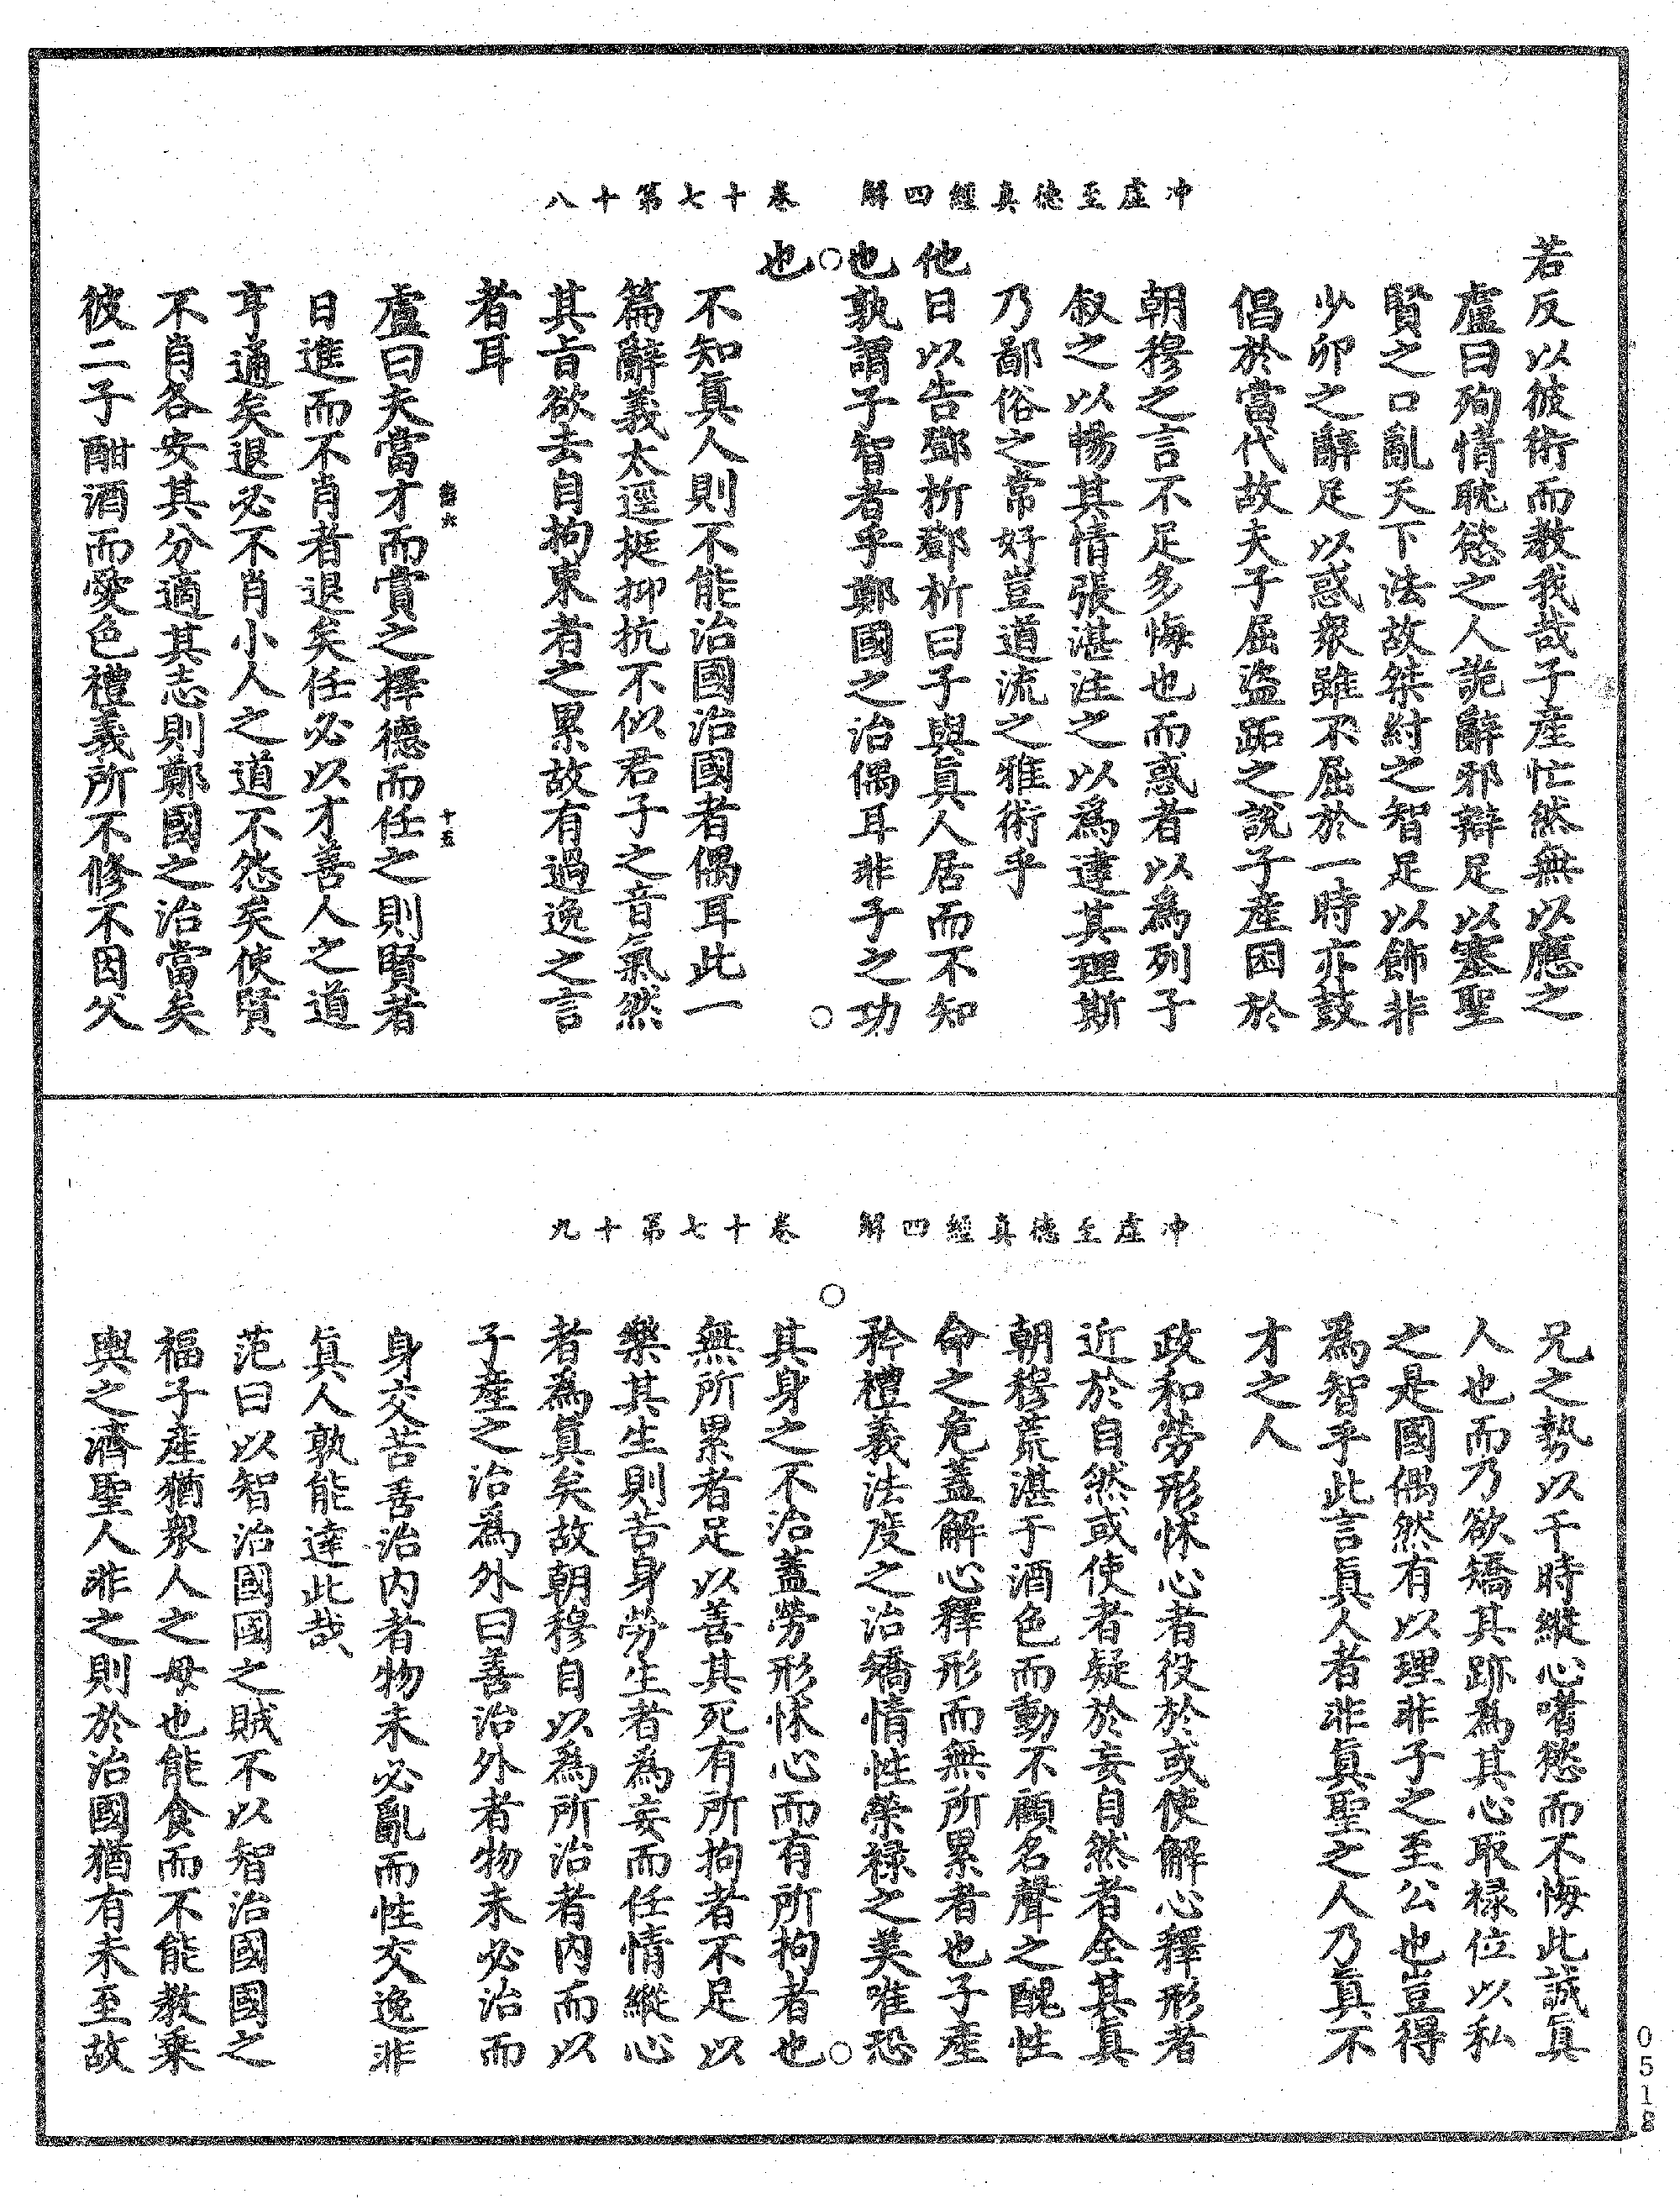 冲虛至德真經四解　卷十七第十八
若反以彼術而教我哉子產忙然無以應之
盧曰殉情耽慾之人詭辭邪辯足以塞聖
賢之口亂天下法故桀紂之智足以飾非
少卯之辭足以惑衆雖不屈於一時亦鼓
倡於當代故夫子屈盜跖之說子產困於
朝穆之言不足多悔也而惑者以為列子
叙之以暢其情張湛注之以爲達其理斯
乃鄙俗之常好豈道流之雅術乎
他日以告鄧析鄧析曰子與眞人居而不知
也孰謂子智者乎鄭國之治偶耳非子之功
也
不知眞人則不能治國治國者偶耳此一
篇辭義太逕挺抑抗不似君子之音氣然
其旨欲去自拘束者之累故有過逸之言
者耳
盧曰夫當才而賞之擇德而任之則賢者
日進而不肖者退矣任必以才善人之道
亨通矣退必不肖小人之道不怨矣使賢
不肖各安其分適其志則鄭國之治當矣
彼二子酣酒而愛色禮義所不修不因父
十五
冲虛至德真經四解　卷十七第十九
兄之勢以干時縱心嗜慾而不悔此誠眞
人也而乃欲矯其跡為其心取祿位以私
之是國偶然有以理非子之至公也豈得
為智乎此言眞人者非眞聖之人乃眞不
才之人
政和勞形怵心者役於或使解心釋形者
近於自然或使者疑於妄自然者全其真
朝穆荒湛于酒色而動不顧名聲之醜性
命之危蓋解心釋形而無所累者也子產
矜禮義法度之治矯情性榮祿之美唯恐
其身之不治蓋勞形怵心而有所拘者也
無所累者足以善其死有所拘者不足以
樂其生則苦身勞生者為妄而任情縱心
者為眞矣故朝穆自以為所治者内而以
子產之治爲外曰善治外者物未必治而
身交苦善治内者物未必亂而性交逸非
眞人孰能達此哉
范曰以智治國國之賊不以智治國國之
福子產猶衆人之母也能食而不能教乘
輿之濟聖人非之則於治國猶有未至故
0518